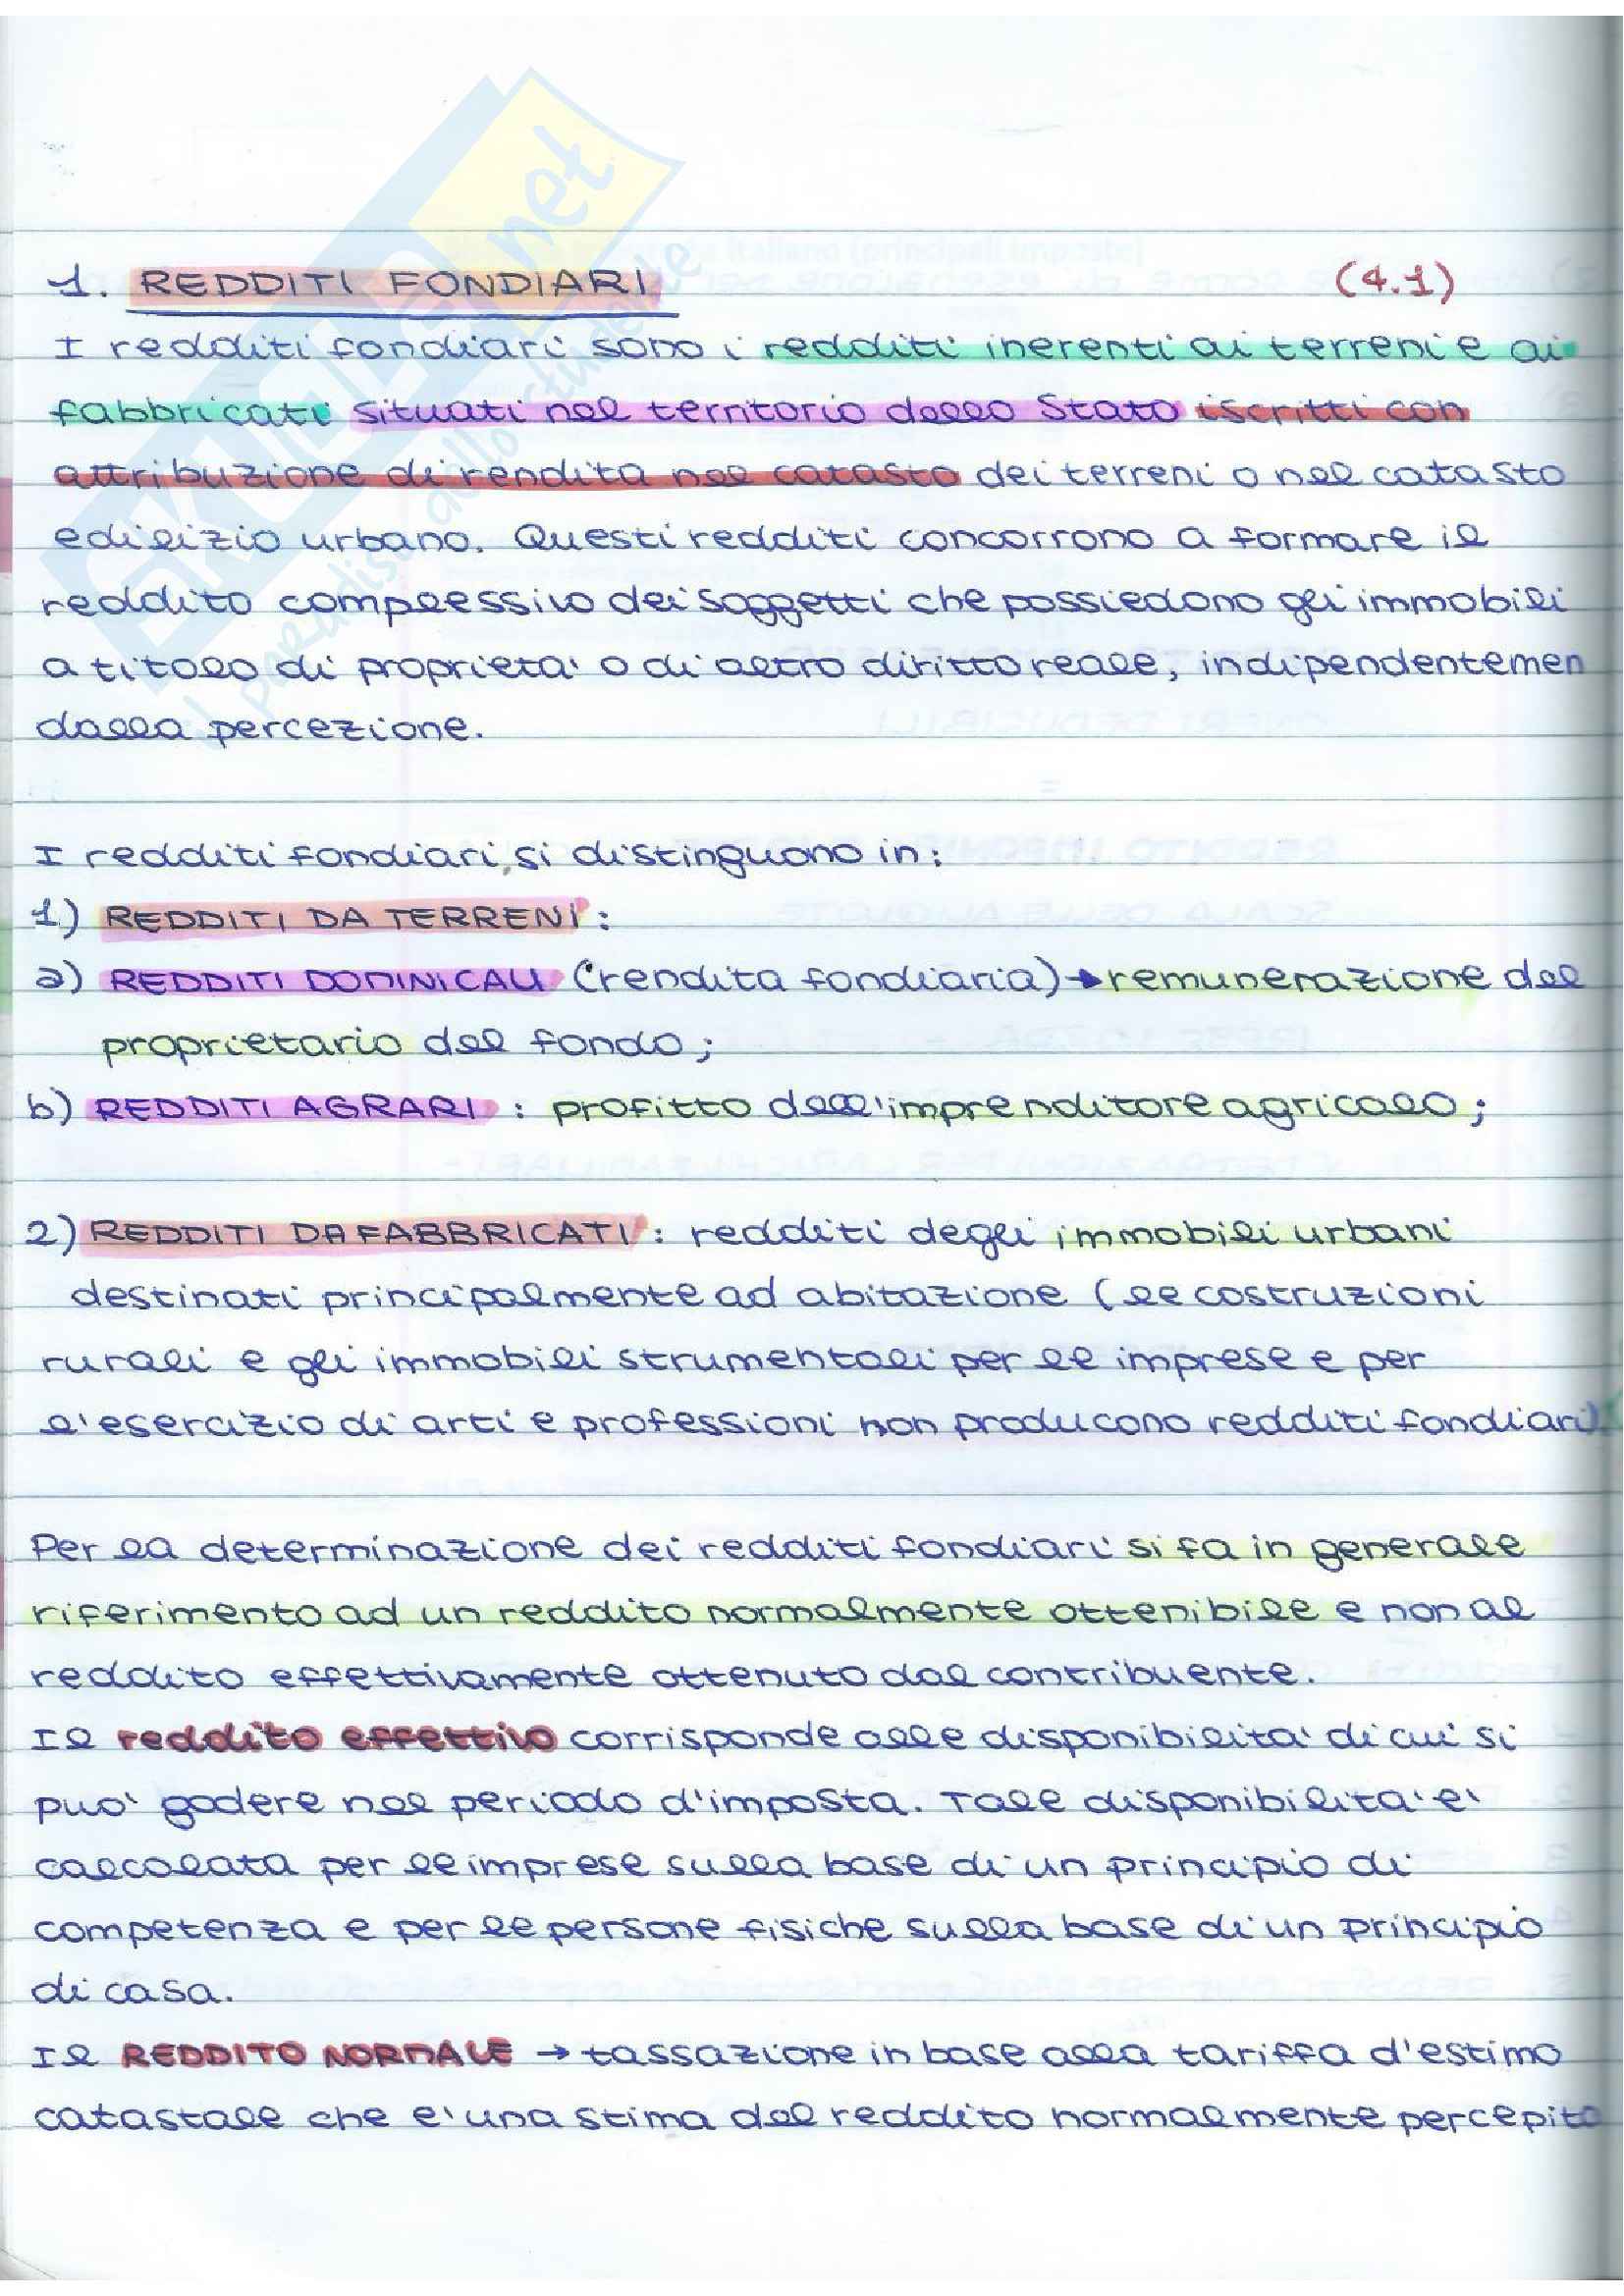 1. REDDITI FONDIARI (4.1)
I redditi fondiari sono i redditi inerenti ai terreni e ai
fabbricati situati nel territorio dello Stato iscritti con
attribuzione di rendita nel catasto dei terreni o nel catasto
edilizio urbano. Questi redditi concorrono a formare il
reddito complessivo dei soggetti che possiedono gli immobili
a titolo di proprieta' o di altro diritto reale, indipendentemen
dalla percezione.
I redditi fondiari, si distinguono in:
1) REDDITI DA TERRENI:
a) REDDITI DOMINICALI (rendita fondiaria) → remunerazione del
proprietario del fondo;
b) REDDITI AGRARI: profitto dell'imprenditore agricolo;
2) REDDITI DA FABBRICATI: redditi degli immobili urbani
destinati principalmente ad abitazione (le costruzioni
rurali e gli immobili strumentali per le imprese e per
l'esercizio di arti e professioni non producono redditi fondiari).
Per la determinazione dei redditi fondiari si fa in generale
riferimento ad un reddito normalmente ottenibile e non al
reddito effettivamente ottenuto dal contribuente.
Il reddito effettivo corrisponde alle disponibilita' di cui si
puo' godere nel periodo d'imposta. Tale disponibilita' e'
calcolata per le imprese sulla base di un principio di
competenza e per le persone fisiche sulla base di un principio
di casa.
Il REDDITO NORMALE → tassazione in base alla tariffa d'estimo
catastale che e' una stima del reddito normalmente percepito
SKUOLA.net
il paradiso dello studente